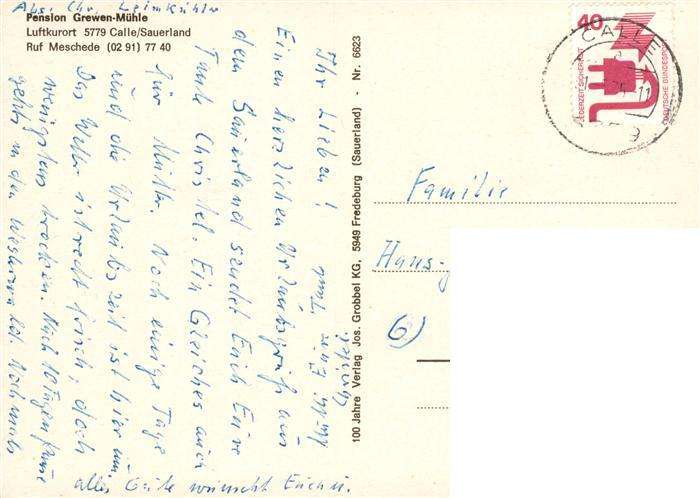 Abs. Chr. Leimkühler
Pension Grewen-Mühle
Luftkurort 5779 Calle/Sauerland
Ruf Meschede (02 91) 77 40
Ihr Lieben!
Einen herzlichen Urlaubsgruß aus
dem Sauerland sendet Euch Eure
Tante Christel. Ein Gleiches auch
für Mutter. Noch einige Tage
und die Urlaubszeit ist hier um
Das Wetter ist recht frisch, doch
wenigstens trocken. Nach 10 Tagen
geht's in den Nochmals
alles Gute wünscht Euch u.
Eure Tante
Christel
100 Jahre Verlag Jos. Grobbel KG, 5949 Fredeburg (Sauerland) - Nr. 6623
40
JEDERZEIT SICHERHEIT
DEUTSCHE BUNDESPOST
CALLE
Familie
Hans-
6)